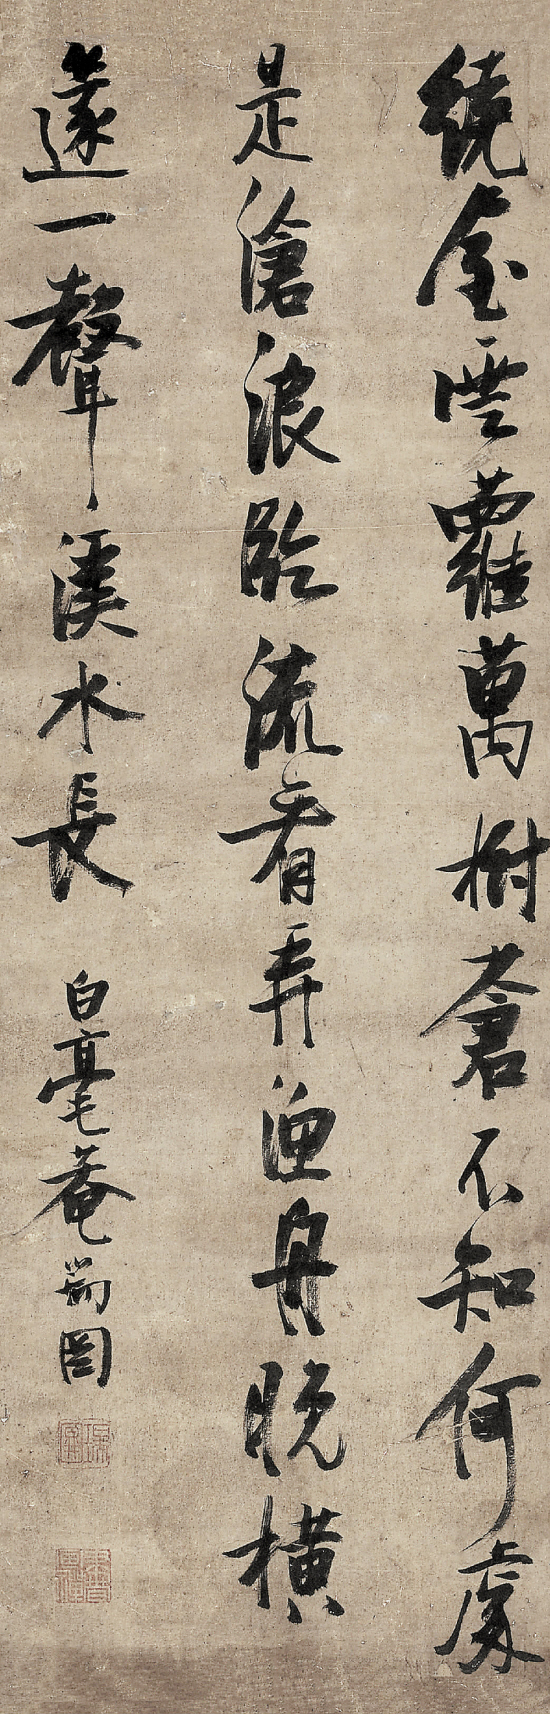 繞屋雲蘿萬樹蒼不知何處
是滄浪臨流看弄漁舟晚橫
邃一聲溪水長
白毫菴瑞圖